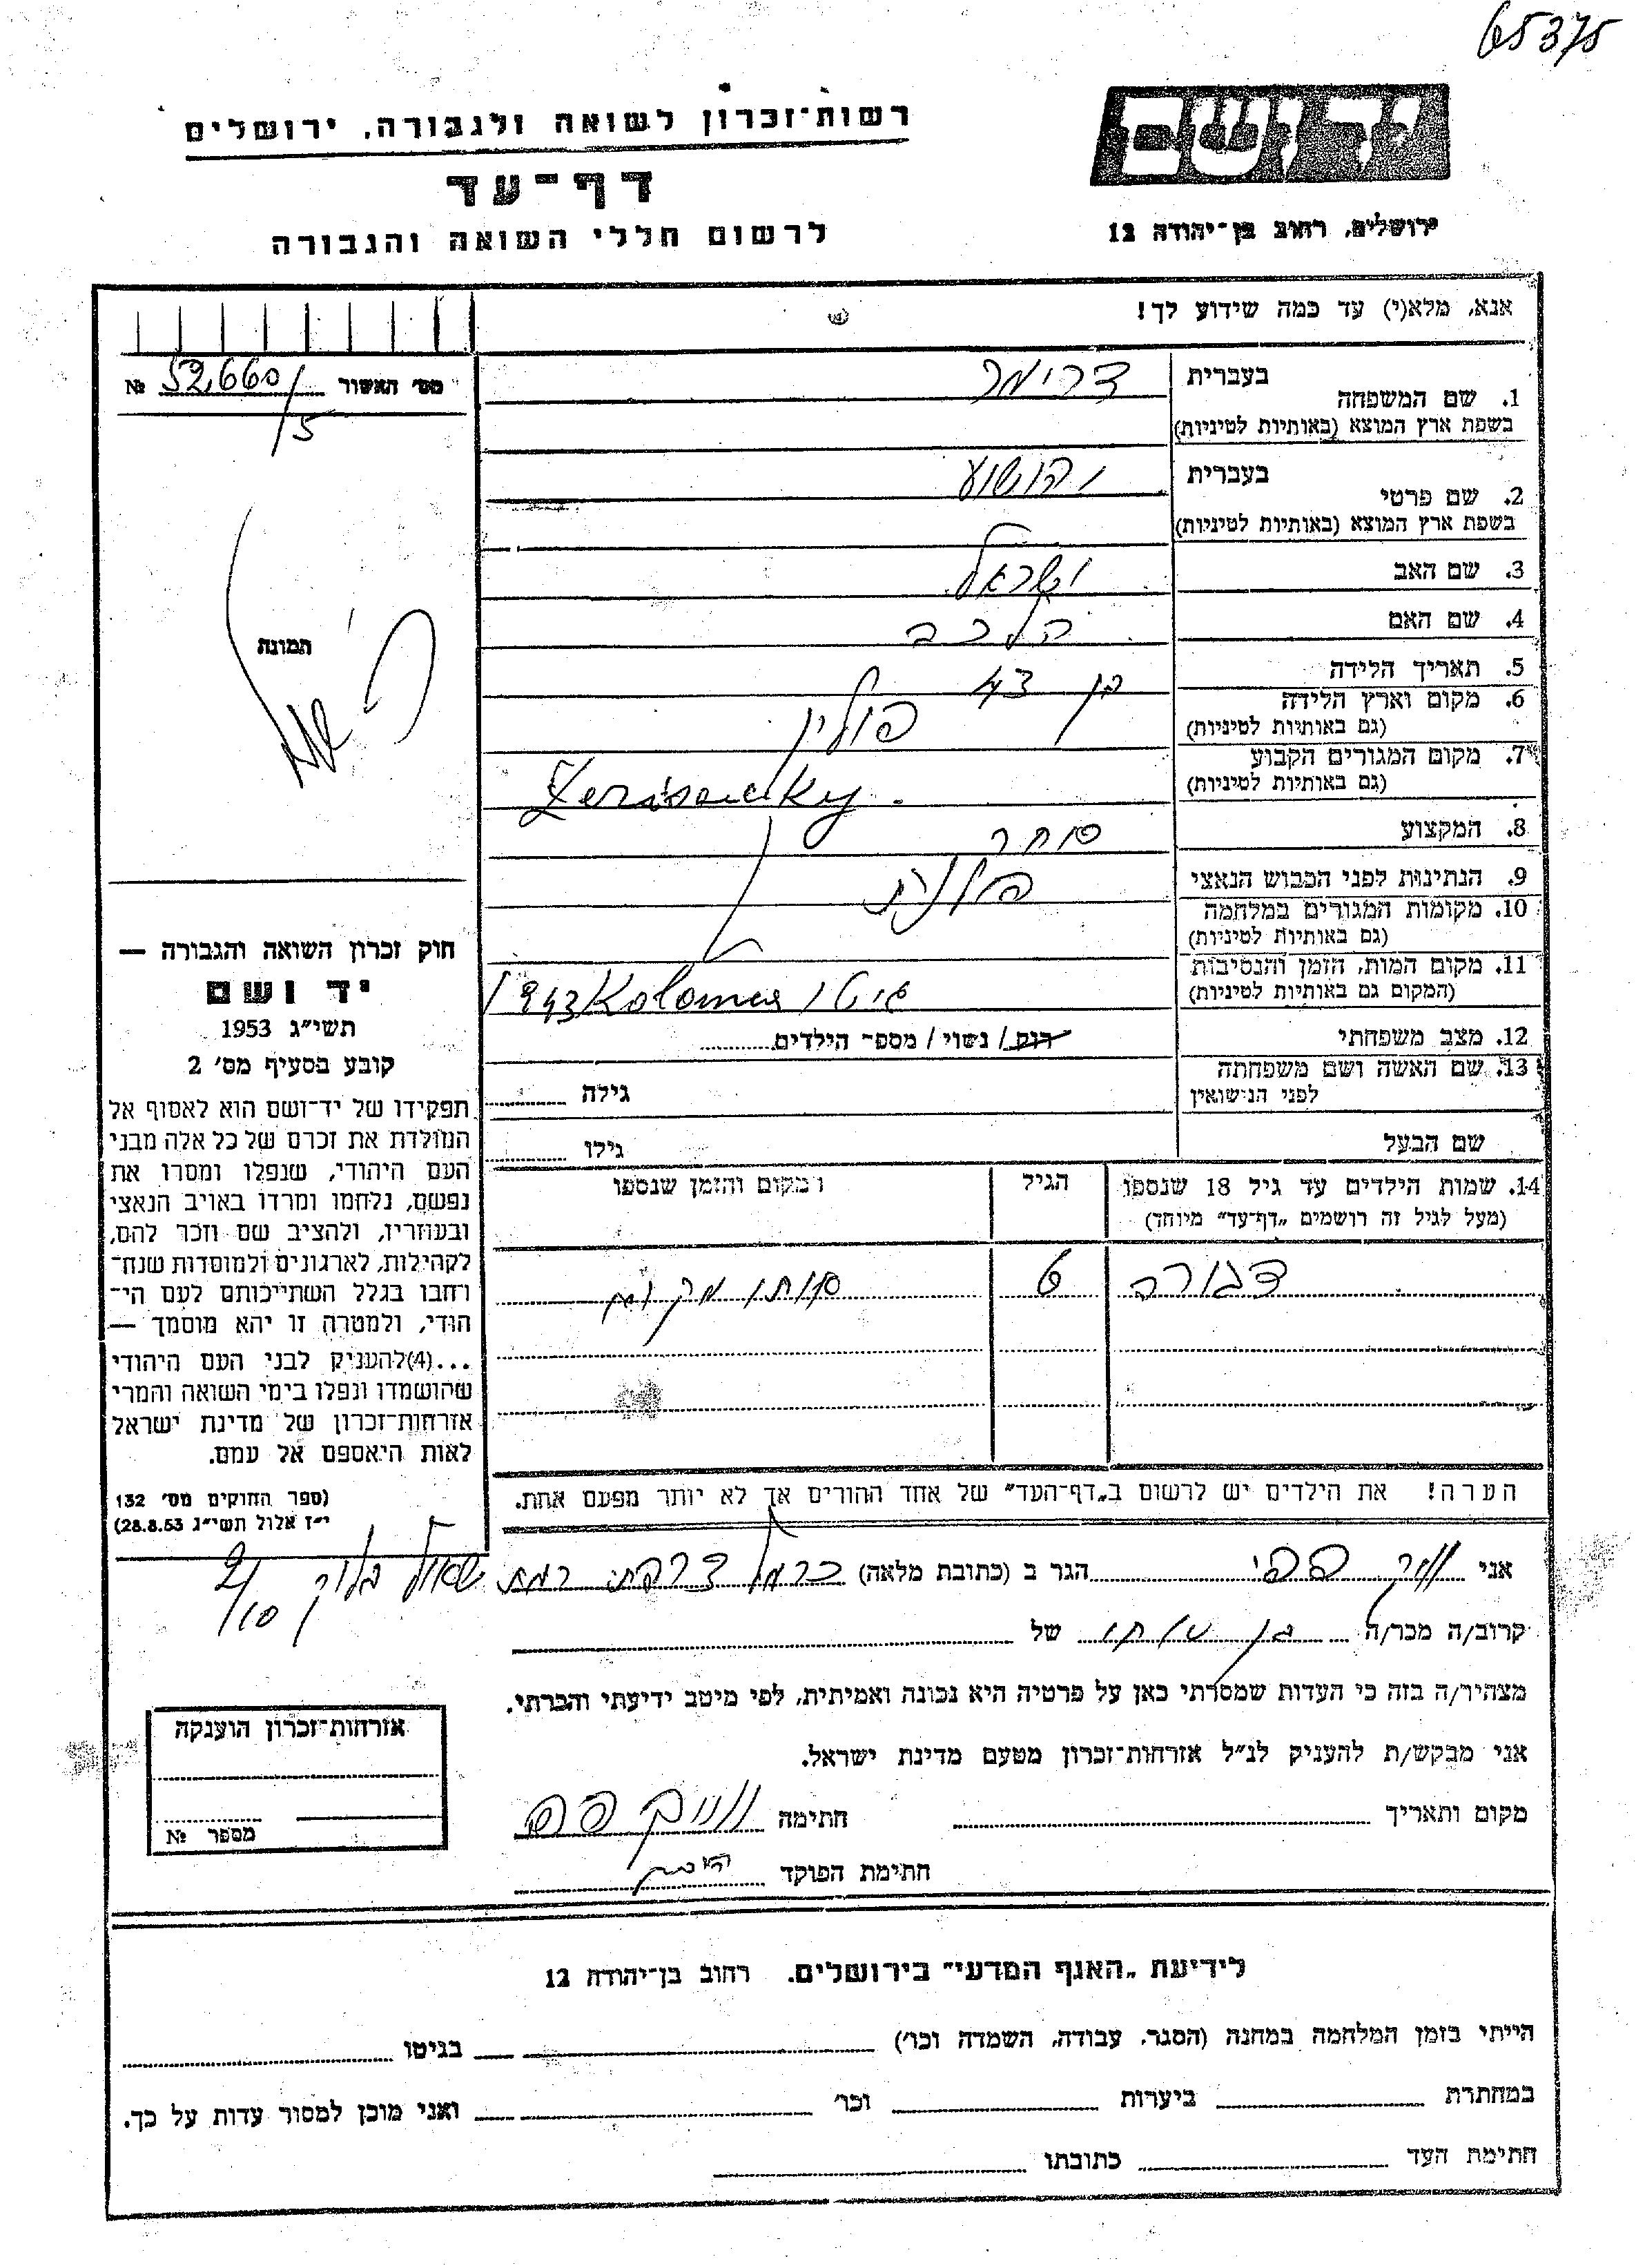 65375
יד ושם
ירושלים, רחוב בן־יהודה 12
רשות־זכרון לשואה ולגבורה, ירושלים
דף־עד
לרשום חללי השואה והגבורה
אנא, מלא(י) עד כמה שידוע לך!
1. שם המשפחה
בעברית דרימר
בשפת ארץ המוצא (באותיות לטיניות)
2. שם פרטי
בעברית יהושוע
בשפת ארץ המוצא (באותיות לטיניות)
3. שם האב ישראל
4. שם האם
5. תאריך הלידה בן 43
6. מקום וארץ הלידה פולין
(גם באותיות לטיניות)
7. מקום המגורים הקבוע
(גם באותיות לטיניות)
8. המקצוע סוחר
9. הנתינות לפני הכבוש הנאצי פולנית
10. מקומות המגורים במלחמה
(גם באותיות לטיניות)
11. מקום המות, הזמן והנסיבות גיטו Kolomea 1943
(המקום גם באותיות לטיניות)
12. מצב משפחתי רווק / נשוי / מספר הילדים
13. שם האשה ושם משפחתה
לפני הנישואין גילה
שם הבעל גילו
14. שמות הילדים עד גיל 18 שנספו הגיל מקום והזמן שנספו
(מעל לגיל זה רושמים „דף־עד” מיוחד)
דבורה 6 אותו מקום
הערה! את הילדים יש לרשום ב„דף־העד” של אחד ההורים אך לא יותר מפעם אחת.
מס' האשור № 52,660/5
תמונה
חוק זכרון השואה והגבורה —
יד ושם
תשי״ג 1953
קובע בסעיף מס׳ 2
תפקידו של יד־ושם הוא לאסוף אל
המולדת את זכרם של כל אלה מבני
העם היהודי, שנפלו ומסרו את
נפשם, נלחמו ומרדו באויב הנאצי
ובעוזריו, ולהציב שם וזכר להם,
לקהילות, לארגונים ולמוסדות שנח־
רחבו בגלל השתייכותם לעם הי־
הודי, ולמטרה זו יהא מוסמך —
...(4)להעניק לבני העם היהודי
שהושמדו ונפלו בימי השואה והמרי
אזרחות־זכרון של מדינת ישראל
לאות היאספם אל עמם.
(ספר החוקים מס׳ 132
י״ז אלול תשי״ג 28.8.53)
אני הגר ב (כתובת מלאה) כרמל צרפתי רמת שאול בלוק 2/10
קרוב/ה מכר/ה בן אחי של
מצהיר/ה בזה כי העדות שמסרתי כאן על פרטיה היא נכונה ואמיתית, לפי מיטב ידיעתי והכרתי.
אני מבקש/ת להעניק לנ״ל אזרחות־זכרון מטעם מדינת ישראל.
מקום ותאריך חתימה
חתימת הפוקד
אזרחות־זכרון הוענקה
מספר №
לידיעת „האגף המדעי” בירושלים. רחוב בן־יהודה 12
הייתי בזמן המלחמה במחנה (הסגר, עבודה, השמדה וכו׳) בגיטו
במחתרת ביערות וכו׳ ואני מוכן למסור עדות על כך.
חתימת העד כתובתו